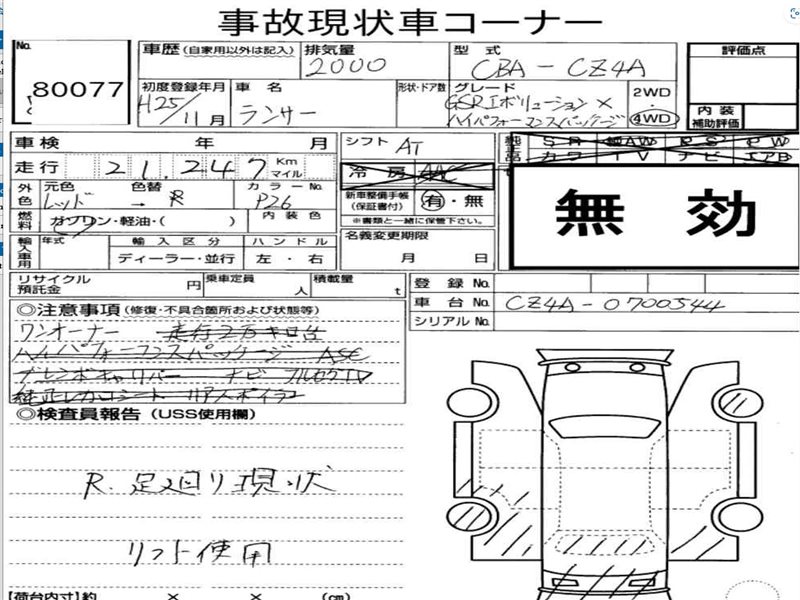 事故現状車コーナー
No. 80077
車歴 (自家用以外は記入) 排気量 2000 型式 CBA-CZ4A 評価点
初度登録年月 H25/11月 車名 ランサー 形状・ドア数 グレード GSRエボリューションX ハイパフォーマンスパッケージ 2WD・4WD 内装補助評価
車検 年 月 シフト AT 純正品 SR 革 AW PS PW
走行 21,247 Km マイル 冷房 AAC カワ TV ナビ エアB
外色 元色 レッド 色替 → R カラーNo. P26 新車整備手帳(保証書付) 有・無
※書類と一緒に保管下さい。
燃料 ガソリン・軽油・( ) 内装色 名義変更期限 月 日
無効
輸入車用 年式 輸入区分 ディーラー・並行 ハンドル 左・右
リサイクル預託金 円 乗車定員 人 積載量 t 登録No.
車台No. CZ4A-0700544
シリアルNo.
◎注意事項 (修復・不具合箇所および状態等)
ワンオーナー 走行2万キロ台
ハイパフォーマンスパッケージ ASC
ブレンボキャリパー ナビ フルセグTV
純正レカロシート リアスポイラー
◎検査員報告 (USS使用欄)
R.足廻り現状
リフト使用
【荷台内寸】約 × × (cm)